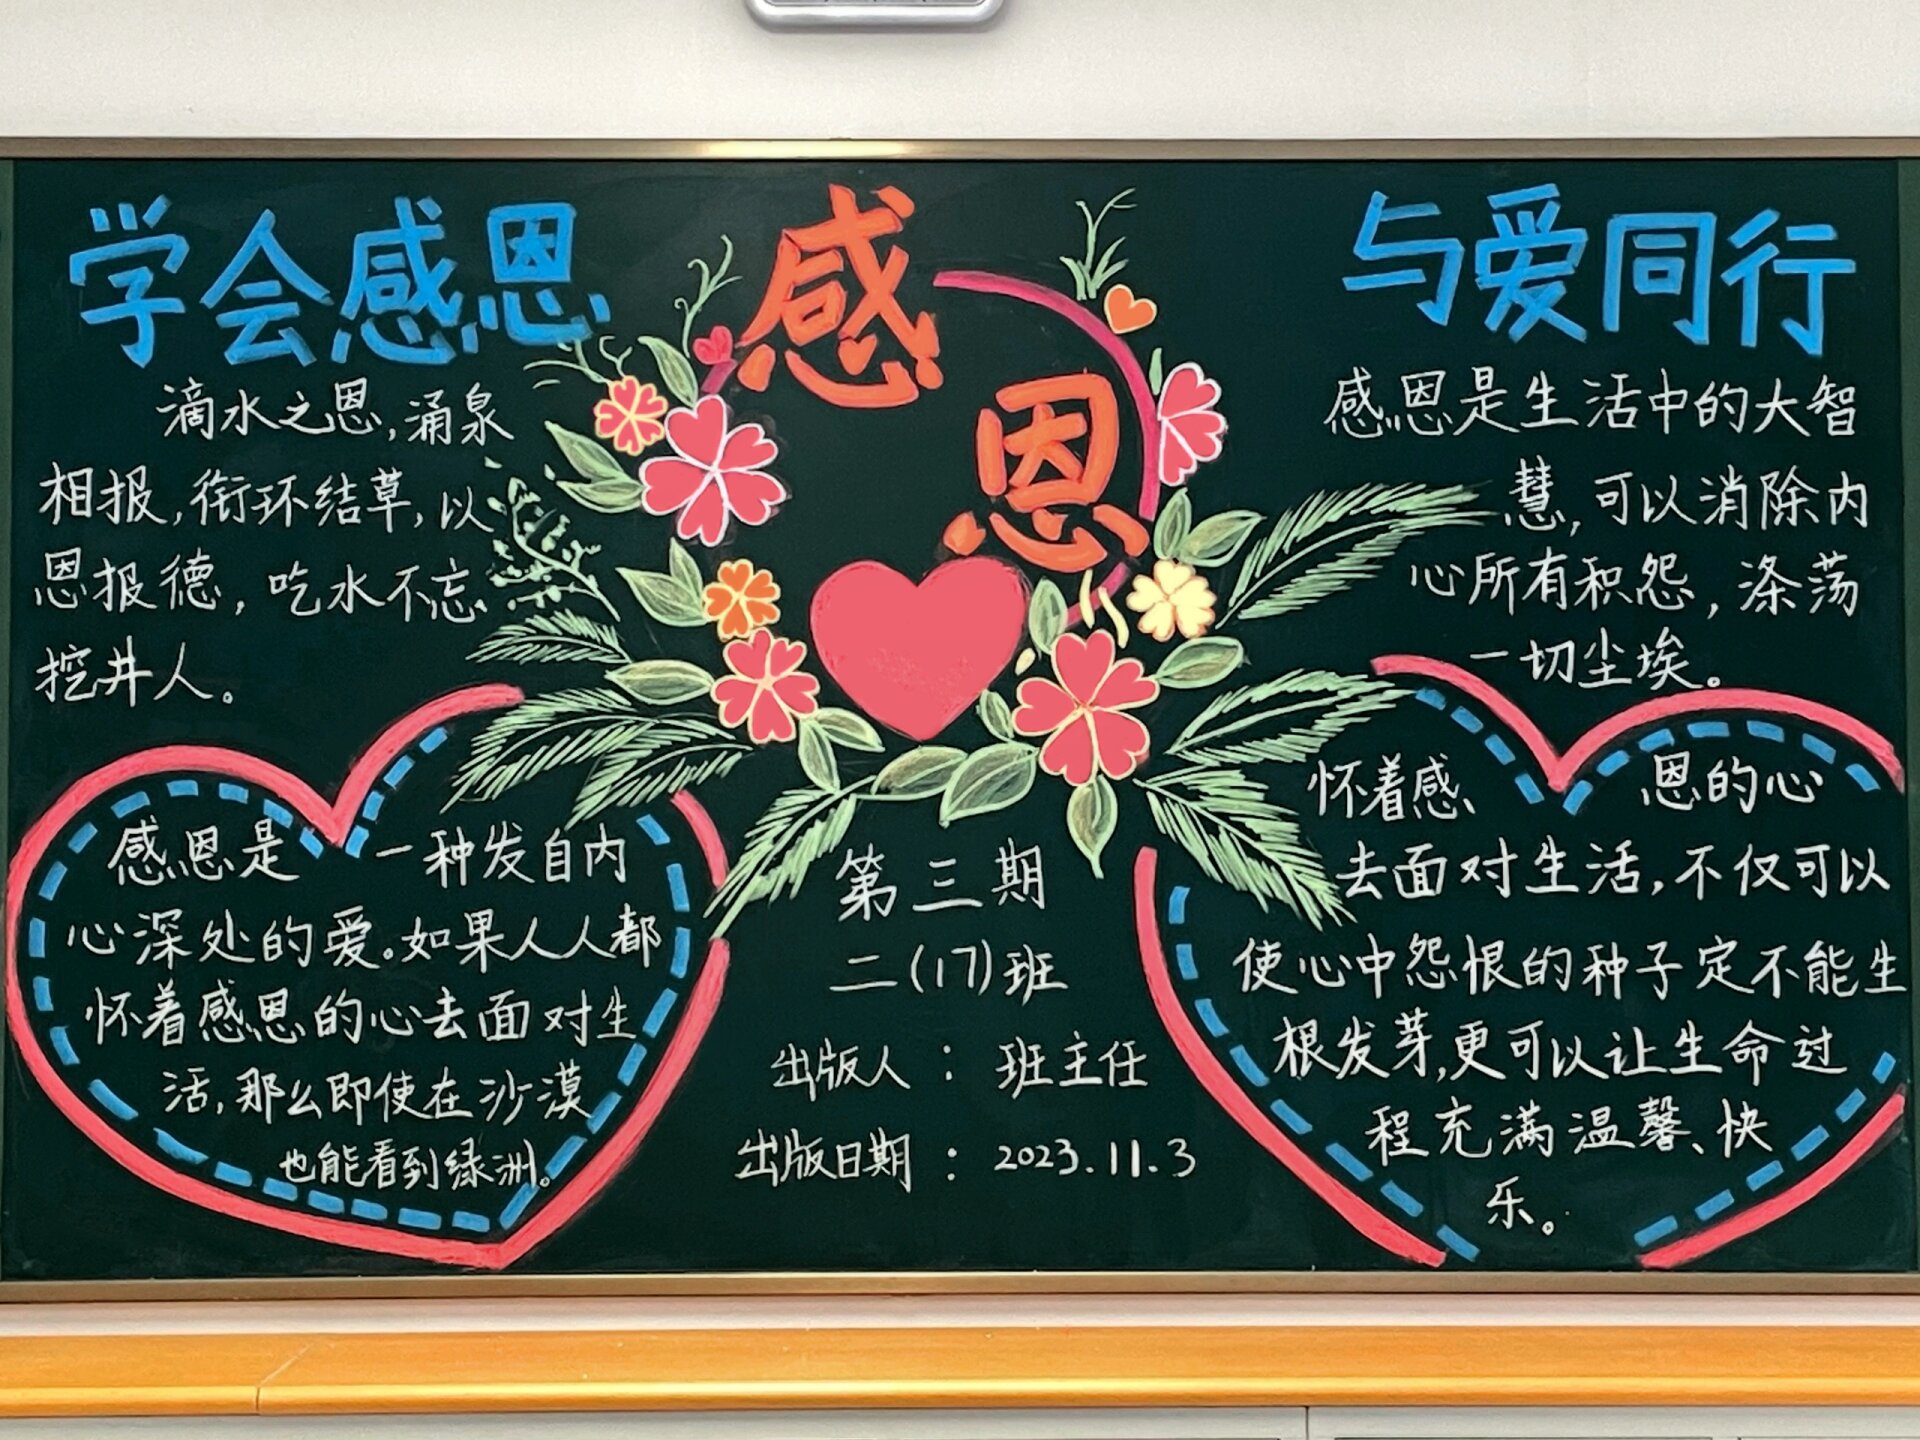 学会感恩
滴水之恩,涌泉
相报,衔环结草,以
恩报德,吃水不忘
挖井人。
感恩是一种发自内
心深处的爱。如果人人都
怀着感恩的心去面对生
活,那么即使在沙漠
也能看到绿洲。
感
恩
第三期
二(17)班
出版人：班主任
出版日期：2023.11.3
与爱同行
感恩是生活中的大智
慧,可以消除内
心所有积怨,涤荡
一切尘埃。
怀着感恩的心
去面对生活,不仅可以
使心中怨恨的种子定不能生
根发芽,更可以让生命过
程充满温馨、快
乐。